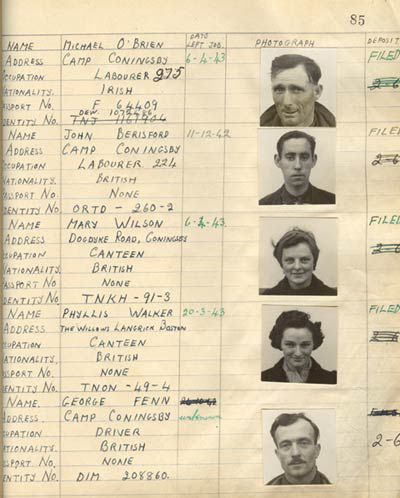 85
NAME MICHAEL O'BRIEN DATE LEFT JOB. PHOTOGRAPH DEPOSIT
ADDRESS CAMP CONINGSBY 6-4-43 FILED
CCUPATION LABOURER 275
ATIONALITY. IRISH
ASSPORT No. F 64409
DEW. 1072286
DENTITY No.
NAME JOHN BERISFORD 11-12-42 FILED
ADDRESS CAMP CONINGSBY
CCUPATION LABOURER 224 2-6
NATIONALITY. BRITISH
ASSPORT No. NONE
DENTITY No. ORTD - 260-2
NAME MARY WILSON 6-2-43. FILED
ADDRESS DOGDYKE ROAD, CONINGSBY
CUPATION CANTEEN
NATIONALITY BRITISH
ASSPORT No. NONE
DENTITY No. TNKH - 91-3
NAME PHYLLIS WALKER 20-3-43 FILED
ADDRESS THE WILLOWS LANGRICK BOSTON
CUPATION CANTEEN
ATIONALITY. BRITISH
SSPORT No. NONE
ENTITY No. TNON - 49-4
NAME. GEORGE FENN
ADDRESS. CAMP CONINGSBY unknown
CUPATION DRIVER
ATIONALITY BRITISH 2-6
SSPORT No. NONE
ENTITY No. DIM 208860.